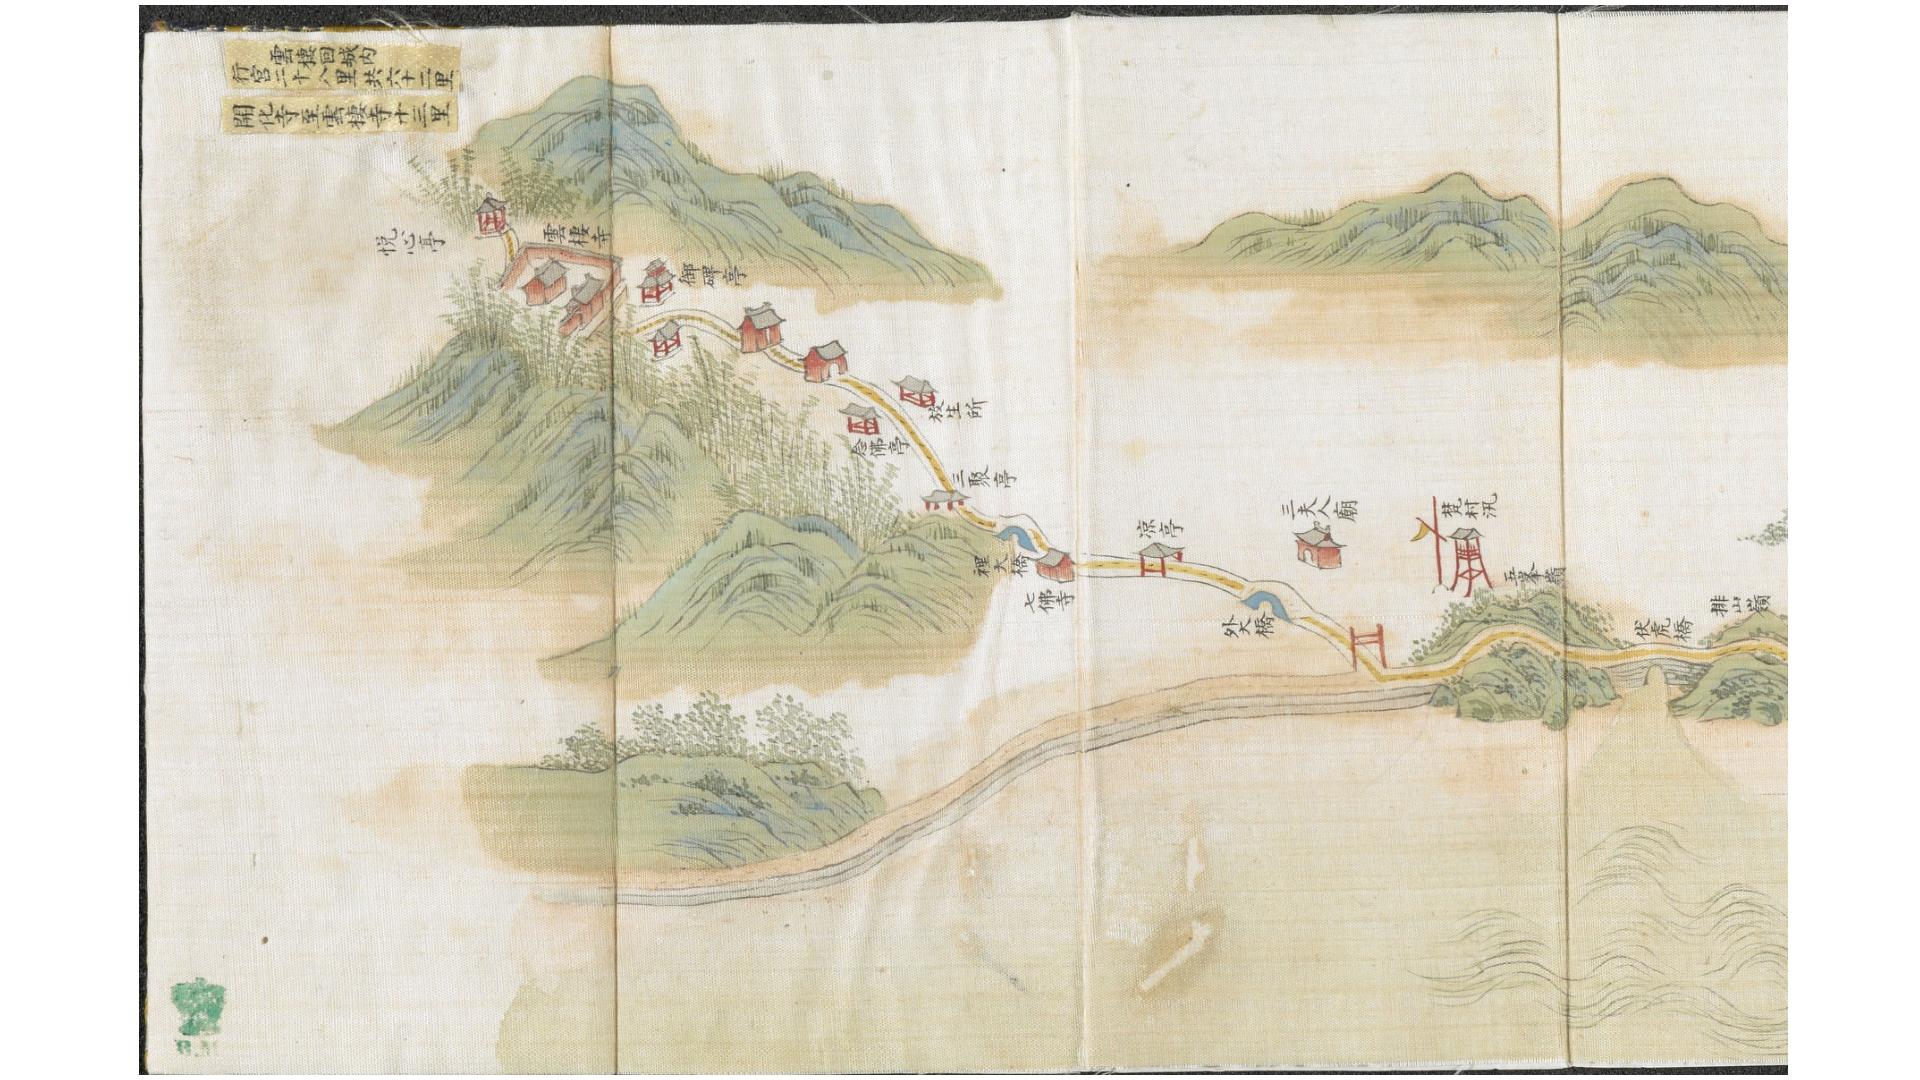 雲棲回城内
行宮二十八里共六十二里
開化寺至雲棲寺十三里
悦心亭
雲棲寺
御碑亭
放生所
念佛亭
三聚亭
裡大橋
七佛寺
凉亭
外大橋
三夫人廟
梵村汛
五峯嶺
伏虎橋
排山嶺
B.M